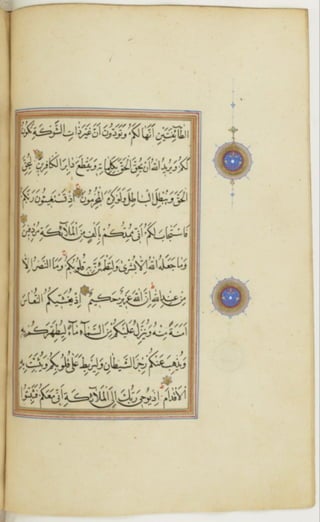 الطَّائِفَتَيْنِ أَنَّهَا لَكُمْ وَتَوَدُّونَ أَنَّ غَيْرَ ذَاتِ الشَّوْكَةِ تَكُونُ
لَكُمْ وَيُرِيدُ اللَّهُ أَنْ يُحِقَّ الْحَقَّ بِكَلِمَاتِهِ وَيَقْطَعَ دَابِرَ الْكَافِرِينَ لِيُحِقَّ
الْحَقَّ وَيُبْطِلَ الْبَاطِلَ وَلَوْ كَرِهَ الْمُجْرِمُونَ إِذْ تَسْتَغِيثُونَ رَبَّكُمْ
فَاسْتَجَابَ لَكُمْ أَنِّي مُمِدُّكُمْ بِأَلْفٍ مِنَ الْمَلَائِكَةِ مُرْدِفِينَ
وَمَا جَعَلَهُ اللَّهُ إِلَّا بُشْرَى وَلِتَطْمَئِنَّ بِهِ قُلُوبُكُمْ وَمَا النَّصْرُ إِلَّا
مِنْ عِنْدِ اللَّهِ إِنَّ اللَّهَ عَزِيزٌ حَكِيمٌ إِذْ يُغَشِّيكُمُ النُّعَاسَ
أَمَنَةً مِنْهُ وَيُنَزِّلُ عَلَيْكُمْ مِنَ السَّمَاءِ مَاءً لِيُطَهِّرَكُمْ بِهِ
وَيُذْهِبَ عَنْكُمْ رِجْزَ الشَّيْطَانِ وَلِيَرْبِطَ عَلَى قُلُوبِكُمْ وَيُثَبِّتَ بِهِ
الْأَقْدَامَ إِذْ يُوحِي رَبُّكَ إِلَى الْمَلَائِكَةِ أَنِّي مَعَكُمْ فَثَبِّتُوا